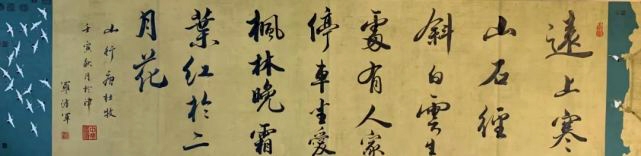 遠上寒
山石徑
斜白雲生
處有人家
停車坐愛
楓林晚霜
葉紅於二
月花
山行唐杜牧
壬寅秋月於津
羅
軍